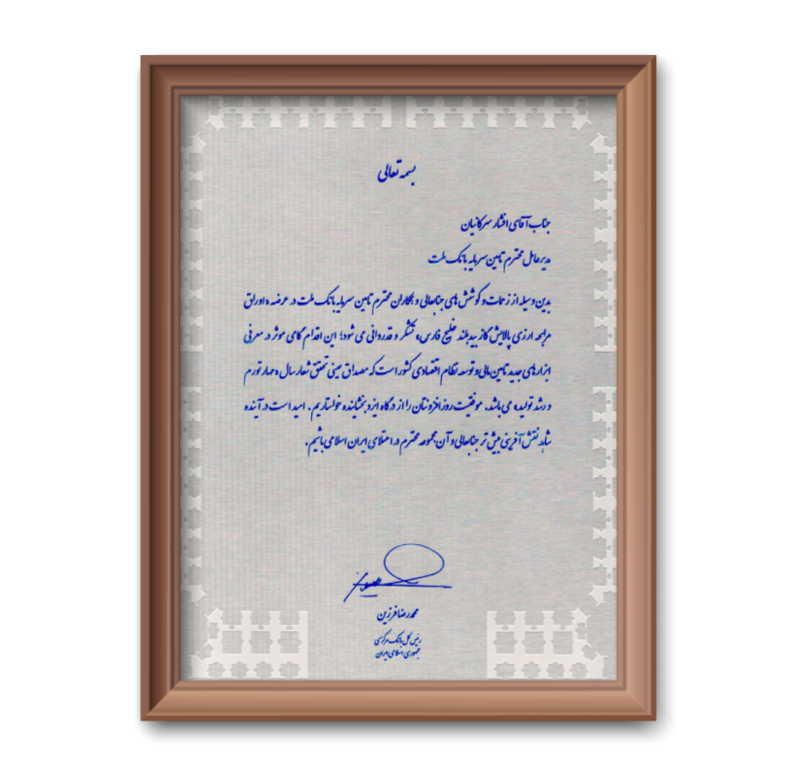 بسمه تعالی
جناب آقای افشار سرکانیان
مدیرعامل محترم تامین سرمایه بانک ملت
بدین وسیله از زحمات و کوشش های جنابعالی و همکاران محترم تامین سرمایه بانک ملت در عرضه «اوراق
مرابحه ارزی پالایش گاز بیدبلند خلیج فارس» تشکر و قدردانی می شود؛ این اقدام گامی موثر در معرفی
ابزارهای جدید تامین مالی و توسعه نظام اقتصادی کشور است که مصداق عینی تحقق شعار سال «مهار تورم
و رشد تولید» می باشد. موفقیت روزافزونتان را از درگاه ایزد بخشاینده خواستاریم. امید است در آینده
شاهد نقش آفرینی بیش تر جنابعالی و آن مجموعه محترم در اعتلای ایران اسلامی باشیم.
محمدرضا فرزین
رئیس کل بانک مرکزی
جمهوری اسلامی ایران